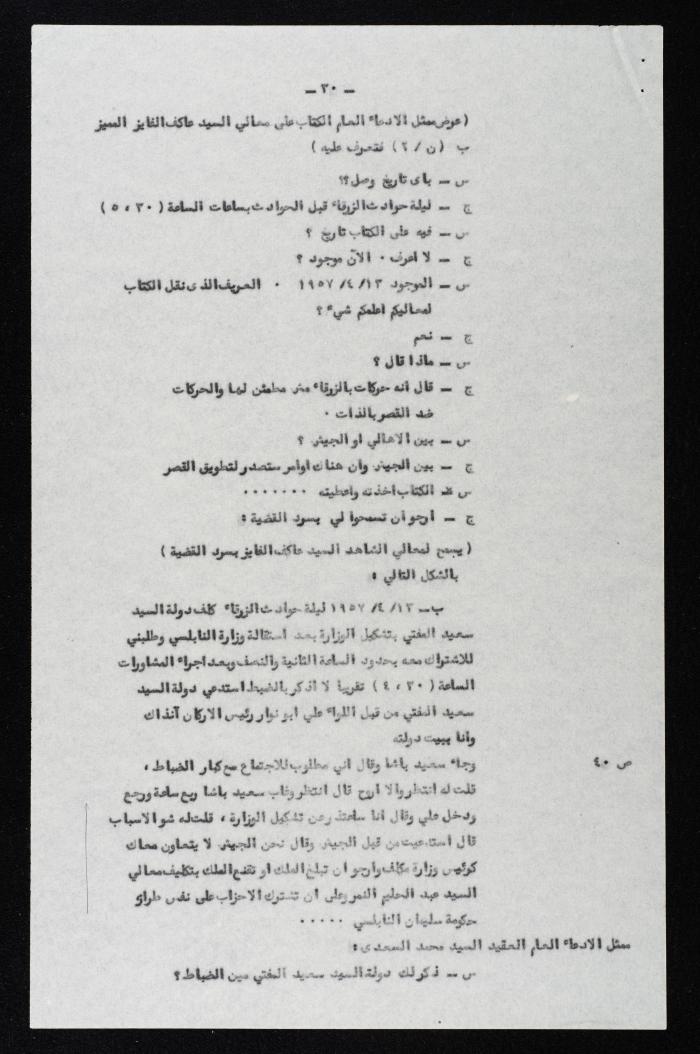 ـ ٣٠ ـ
( عرض ممثل الادعاء العام الكتاب على معالي السيد عاكف الفايز المميز
ب ( ن / ٢ ) فتعرف عليه )
س ــ باى تاريخ وصل ؟؟
ج ــ ليلة حوادث الزرقاء قبل الحوادث بساعات الساعة ( ٣٠ ، ٥ )
س ــ فيه على الكتاب تاريخ ؟
ج ــ لا اعرف ٠ الآن موجود ؟
س ــ الموجود ١٣ /٤ / ١٩٥٧ ٠ العريف الذى نقل الكتاب
لمعاليكم اعلمكم شيء ؟
ج ــ نعم
س ــ ماذا قال ؟
ج ــ قال انه حركات بالزرقاء مش مطمئن لها والحركات
ضد القصر بالذات ٠
س ــ بين الاهالي او الجيش ؟
ج ــ بين الجيش وان هناك اوامر ستصدر لتطويق القصر
س ــ الكتاب اخذته واعطيته ٠٠٠٠٠٠٠
ج ــ ارجو ان تسمحوا لي بسرد القضية :
( يسمح لمعالي الشاهد السيد عاكف الفايز بسرد القضية )
بالشكل التالي :
ب ــ ١٣ /٤ / ١٩٥٧ ليلة حوادث الزرقاء كلف دولة السيد
سعيد المفتي بتشكيل الوزارة بعد استقالة وزارة النابلسي وطلبني
للاشتراك معه بحدود الساعة الثانية والنصف وبعد اجراء المشاورات
الساعة ( ٣٠ ، ٤ ) تقريبا لا اذكر بالضبط استدعي دولة السيد
سعيد المفتي من قبل اللواء علي ابو نوار رئيس الاركان آنذاك
وانا ببيت دولته
ص ٤٠ وجاء سعيد باشا وقال اني مطلوب للاجتماع مع كبار الضباط ،
قلت له انتظر والا اروح قال انتظر وغاب سعيد باشا ربع ساعة ورجع
ودخل علي وقال انا ساعتذر عن تشكيل الوزارة ، قلت له شو الاسباب
قال استدعيت من قبل الجيش وقال نحن الجيش لا يتعاون معاك
كرئيس وزارة مكلف وارجو ان تبلغ الملك او تقنع الملك بتكليف معالي
السيد عبد الحليم النمر وعلى ان تشترك الاحزاب على نفس طراز
حكومة سليمان النابلسي ٠٠٠٠٠
ممثل الادعاء العام العقيد السيد محمد السعدى :
س ــ ذكر لك دولة السيد سعيد المفتي مين الضباط ؟